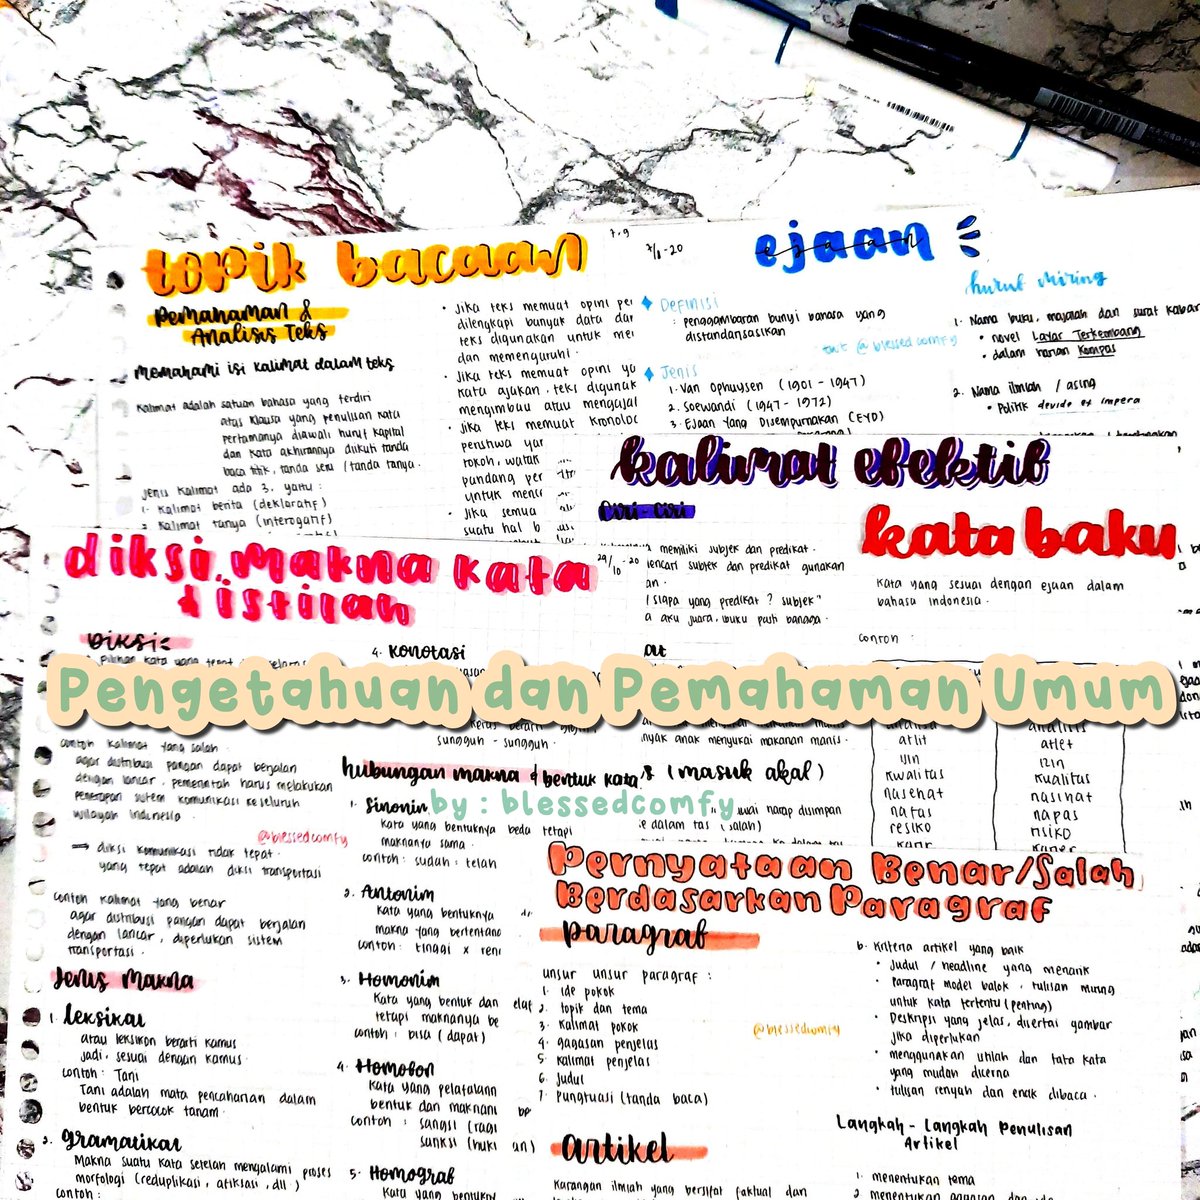 topik bacaan
Pemahaman &
Analisis Teks
Memahami isi kalimat dalam teks
Kalimat adalah satuan bahasa yang terdiri
atas klausa yang penulisan kata
pertamanya diawali huruf kapital
dan kata akhirannya diikuti tanda
baca titik, tanda seru / tanda tanya.
Jenis Kalimat ada 3, yaitu :
1. Kalimat berita (deklaratif)
2. Kalimat tanya (interogatif)
• Jika teks memuat opini
dilengkapi banyak data dan
teks digunakan untuk
dan memengaruhi.
• Jika teks memuat opini
kata ajakan, teks
menghimbau atau
• Jika teks memuat
peristiwa
tokoh, watak
pandang
untuk
• Jika semua
suatu hal
7/11-20
ejaan
◆ Definisi
: penggambaran bunyi bahasa yang
distandarisasikan
twt @blessedcomfy
◆ Jenis
1. Van Ophuysen (1901 - 1947)
2. Soewandi (1947 - 1972)
3. Ejaan Yang Disempurnakan (EYD)
huruf miring
1. Nama buku, majalah dan surat kabar
• novel Layar Terkembang
• dalam harian Kompas
2. Nama ilmiah / asing
• Politik devide et impera
kalimat efektif
Ciri-ciri
memiliki subjek dan predikat.
mencari subjek dan predikat gunakan
siapa yang predikat ? subjek"
aku juara, ibuku pasti bangga.
anak menyukai makanan manis.
(masuk akal)
disimpan
dalam tas (salah)
kata baku
Kata yang sesuai dengan ejaan dalam
bahasa indonesia.
contoh :
atlit atlet
ijin izin
kwalitas kualitas
nasehat nasihat
nafas napas
resiko risiko
diksi, makna kata
& istilah
29/10-20
Diksi
: pilihan kata yang tepat
Pengetahuan dan Pemahaman Umum
by : blessedcomfy
contoh kalimat yang salah.
agar distribusi pangan dapat berjalan
dengan lancar, pemerintah harus melakukan
penerapan sistem komunikasi ke seluruh
wilayah indonesia
@blessedcomfy
→ diksi komunikasi tidak tepat.
yang tepat adalah diksi transportasi
contoh kalimat yang benar
agar distribusi pangan dapat berjalan
dengan lancar, diperlukan sistem
transportasi.
Jenis Makna
1. leksikal
atau leksikon berarti kamus
jadi, sesuai dengan kamus.
contoh : Tani
Tani adalah mata pencaharian dalam
bentuk bercocok tanam.
2. gramatikal
Makna suatu kata setelah mengalami proses
morfologi (reduplikasi, afiksasi, dll.)
contoh :
4. Konotasi
sungguh - sungguh.
hubungan makna & bentuk kata
1. Sinonim
Kata yang bentuknya beda tetapi
maknanya sama.
contoh : sudah : telah
2. Antonim
Kata yang bentuknya
makna yang bertentang
contoh : tinggi x
3. Homonim
Kata yang bentuk dan
tetapi maknanya
contoh : bisa (dapat)
4. Homofon
Kata yang pelafalann
bentuk dan maknan
contoh : sangsi (ragu
sanksi
5. Homograf
Kata yang bentuk
Pernyataan Benar/Salah
Berdasarkan Paragraf
paragraf
unsur unsur paragraf :
1. ide pokok
2. topik dan tema
3. Kalimat pokok
4. gagasan penjelas
5. kalimat penjelas
6. Judul
7. pungtuasi (tanda baca)
@blessedcomfy
artikel
Karangan ilmiah yang bersifat faktual dan
b. Kriteria artikel yang baik
• Judul / headline yang menarik
• Paragraf model balok, tulisan miring
untuk kata tertentu (penting)
• Deskripsi yang jelas, disertai gambar
jika diperlukan
• menggunakan istilah dan tata kata
yang mudah dicerna
• tulisan renyah dan enak dibaca.
Langkah - Langkah Penulisan
Artikel
1. menentukan tema
2. menentukan gagasan dan ide